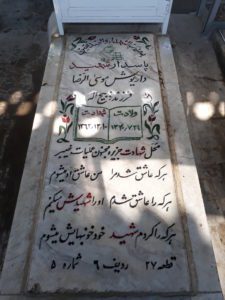 پاسدار شهید
داریوش موسی الرضا
فرزند ذبیح اله
ولادت شهادت
محل شهادت جزیره مجنون عملیات خیبر
هر که عاشق شد مرا من عاشق او میشوم
هر که را عاشق شدم او را شهیدش میکنم
هر که را کردم شهید خود خونبهایش میشوم
قطعه ۲۷ ردیف ۶ شماره ۵